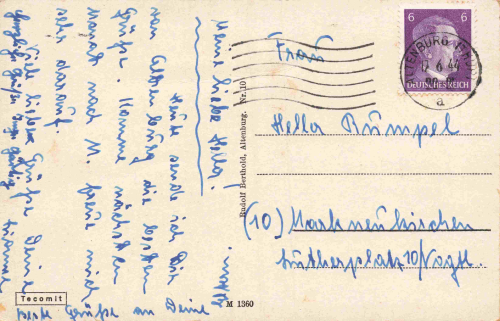 Meine liebe Hella!
Heute sende ich Dir
von Altenburg die besten
Grüße. Komme nächsten
Monat nach M. freue mich
sehr darauf.
Viele liebe Grüße Deine
beste Grüße an Deine
Rudolf Berthold, Altenburg. Nr. 101
M 1360
Tecomit
6 6
DEUTSCHES REICH
ALTENBURG (THÜR)
6.44
a
Frau
Hella Rümpel
(10) Markneukirchen
Lutherplatz 10/Vogtl.